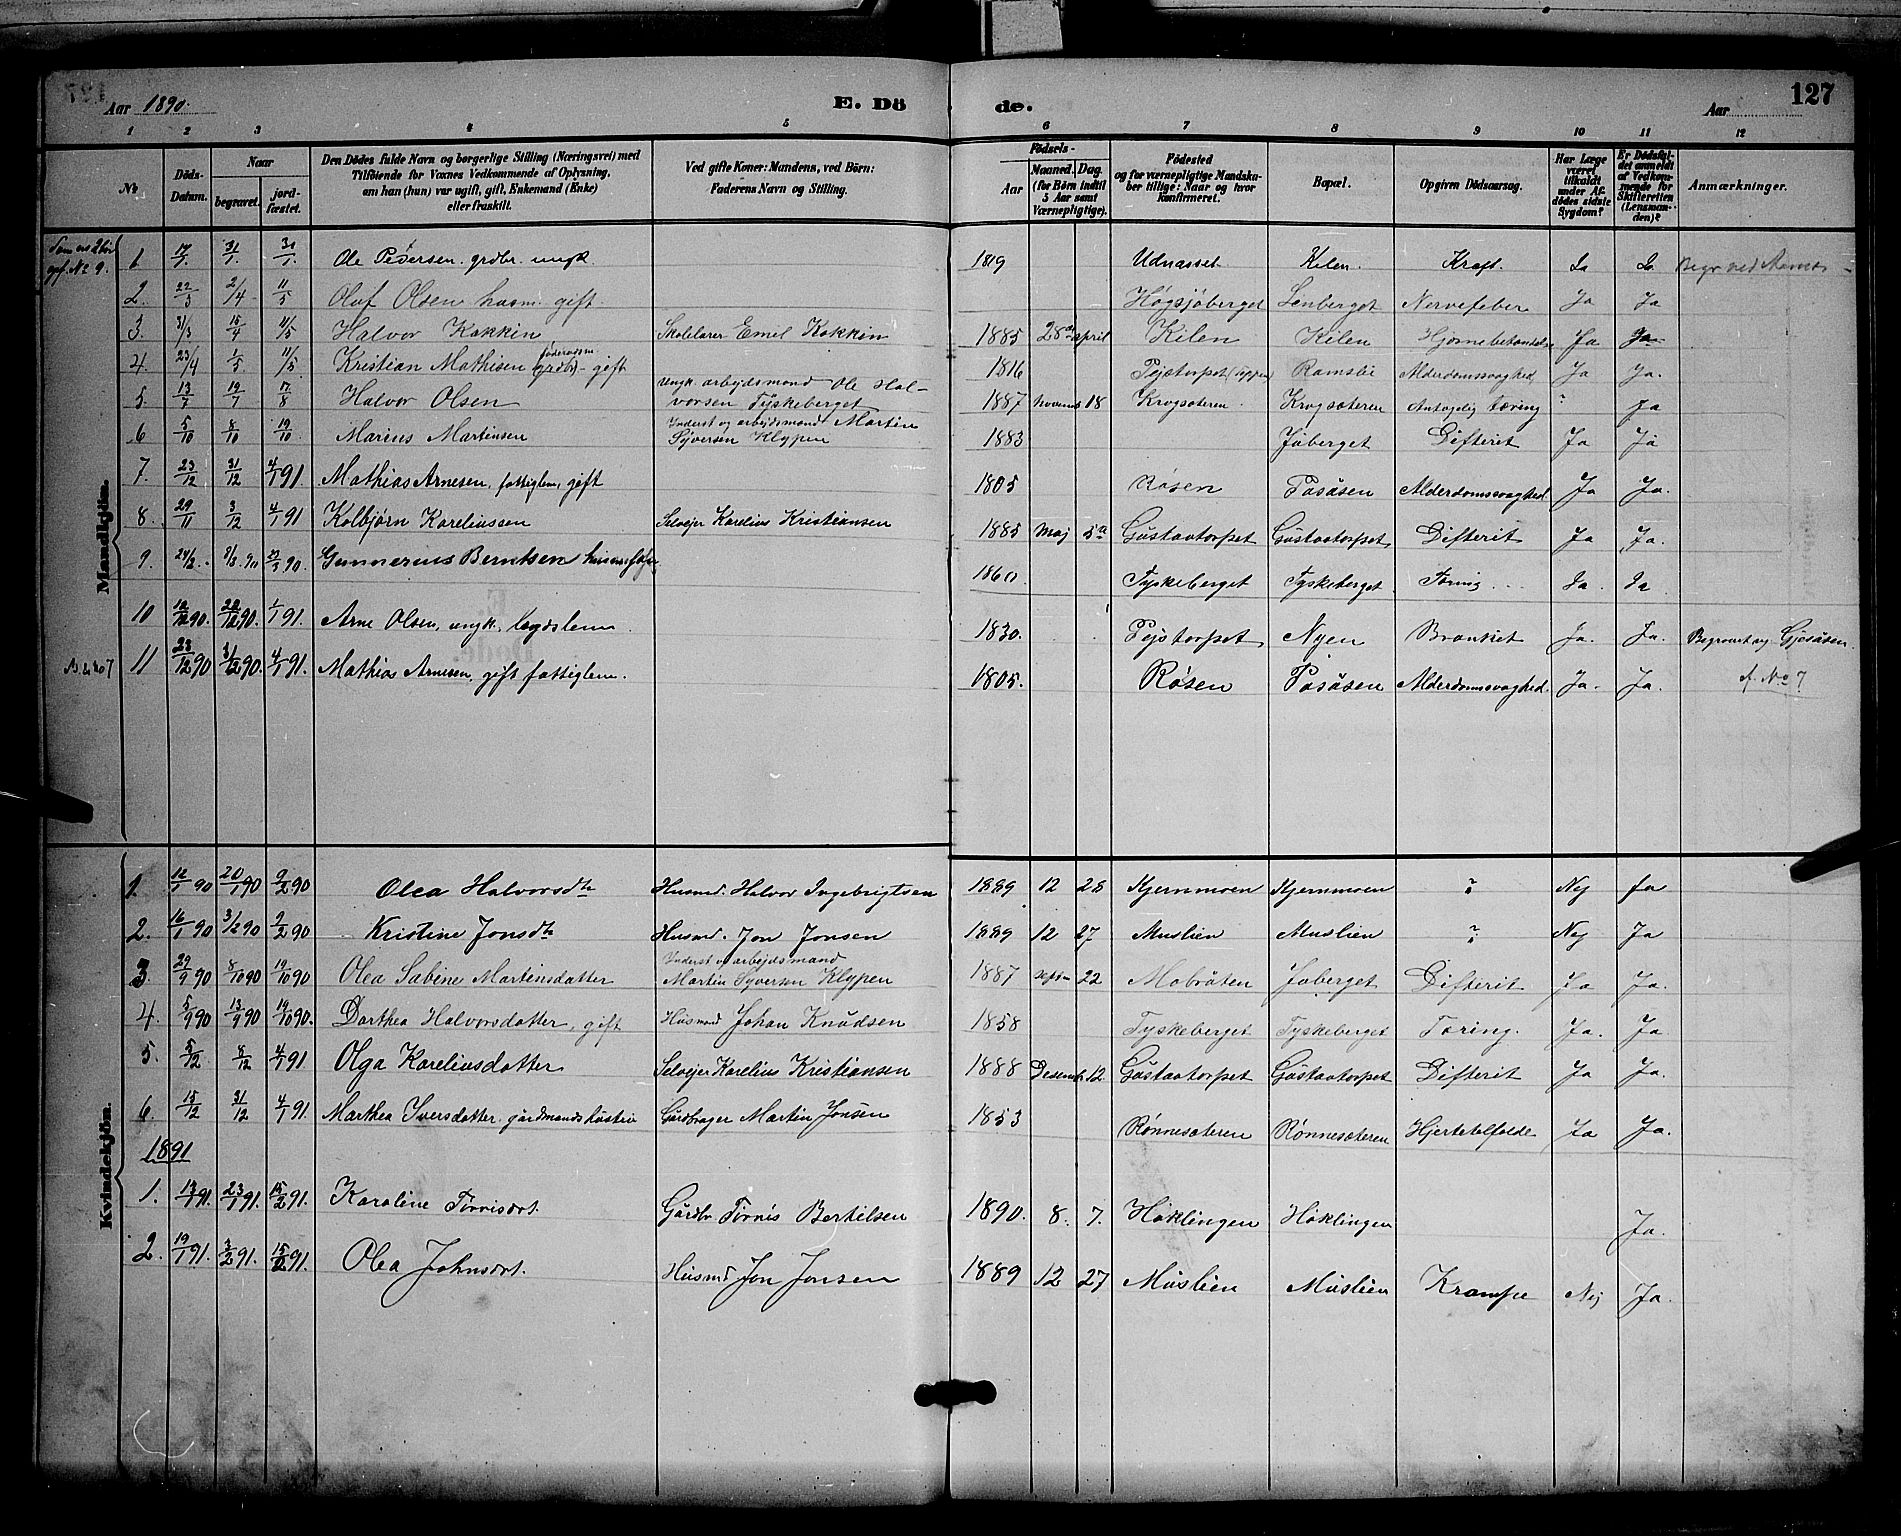 Aar 1890. E. Döde. Aar 127
1 2 3 4 5 6 7 8 9 10 11 12
No.
Döds-Datum.
Naar
begravet.
jordfæstet.
Den Dödes fulde Navn og borgerlige Stilling (Næringsvei) med
Tilföiende for Voxnes Vedkommende af Oplysning,
om han (hun) var ugift, gift, Enkemand (Enke)
eller fraskilt.
Ved gifte Koner: Mandens, ved Börn:
Faderens Navn og Stilling.
Födsels-
Aar
Maaned. Dag.
(for Börn indtil
5 Aar samt
Værnepligtige).
Födested
og for værnepligtige Mandska-
ber tillige: Naar og hvor
konfirmeret.
Bopæl.
Opgiven Dödsaarsag.
Har Læge
været
tilkaldt
under Af-
dödes sidste
Sygdom?
Er Dödsfal-
det anmeldt
af Vedkom-
mende for
Skifteretten
(Lensman-
den)?
Anmærkninger.
Mandkjön.
1 31/1. 31/1 Ole Pedersen. grdbr. ungk. 1819 Udnasset Kilen. Kræft. Ja Ja Begr. ved
2. 22/3 2/4 11/5 Oluf Olsen husm. gift. Høgsjöberget Lenberget Nervefeber Ja Ja
3. 31/3 15/4 11/5 Halvor Kakkin Skolelærer Emel Kakkin 1885 28de april Kilen Kilen Hjernebetændelse Ja Ja
4. 23/4 1/5 11/5 Kristian Mathisen føderaadsm. (grdbr) - gift 1816 Pejstorpet (Typpen) Ramslie Alderdomssvaghed Ja Ja.
5. 13/7 19/7 17/8 Halvor Olsen Ungk. arbejdsmand Ole Hal-
vorsen Tyskeberget 1887 novemb 18 Krogsæteren Krogsæteren Antagelig tæring ? Ja
6 5/10 8/10 19/10 Marius Martinsen Inderst og arbejdsmand Martin
Syversen Klypen 1883 Jöberget Difterit Ja Ja
7. 23/12 31/12 4/1 91 Mathias Arnesen, fattiglem, gift 1805 Råsen Pasåsen Alderdomssvaghed Ja Ja.
8. 29/11 3/12 4/1 91 Kolbjørn Kareliussen Selvejer Karelius Kristiansen 1885 Maj 5te Gustavtorpet Gustavtorpet Difterit Ja Ja.
9. 24/2. 8/3 90 Gunnerius Berntsen 1860 Tyskeberget Tyskeberget Tæring Ja. Ja
10 12 90 90. 1/1 91. Arne Olsen, ungk. lægdslem. 1830. Pejstorpet Nyen Bronkit Ja. Ja. Begravet og Gjesåsen.
11 23/12 90 31/12 90. 4/1 91. Mathias Arnesen, gift fattiglem. 1805. Råsen Pasåsen Alderdomssvaghed. Ja. Ja. cf. No 7
Kvindekjön.
1. 12/1 90 20/1 90 9/2 90 Olea Halvorsdtr Husmd. Halvor Ingebrigtsen 1889 12 28 Kjernmoen Kjernmoen ? Nej Ja
2. 16/1 90 3/2 90 9/2 90 Kristine Jonsdtr Husmd. Jon Jonsen 1889 12 27 Muslien Muslien ? Nej Ja
3. 29/9 90 8/10 90 19/10 90 Olea Sabine Martinsdatter Inderst og arbejdsmand
Martin Syversen Klypen 1887 Septm 22 Mobråten Jöberget Difterit Ja Ja.
4. 5/9 90 13/9 90 19/10 90. Dorthea Halvorsdatter, gift Husmd Johan Knudsen 1858 Tyskeberget Tyskeberget Tæring. Ja. Ja
5. 5/12 8/12 4/1 91 Olga Kareliusdatter Selvejer Karelius Kristiansen 1888 Desemb 12 Gustavtorpet Gustavtorpet Difterit Ja Ja.
6. 15/12 31/12 4/1 91. Marthea Iversdatter, gårdmandshustru Gårdbruger Martin Jonsen 1853 Rønnesæteren Rønnesæteren Hjertetilfælde Ja Ja.
1891
1. 13/1 91. 23/1 91. 15/2 91. Karoline Tørrisdrt. Gårdbr. Tørris Bertelsen 1890. 8. 7. Håklingen Håklingen Ja.
2. 19/1 91. 3/2 91. 15/2 91. Olea Johnsdrt. Husmd Jon Jonsen 1889 12 27 Muslien Muslien Krampe Nej Ja.